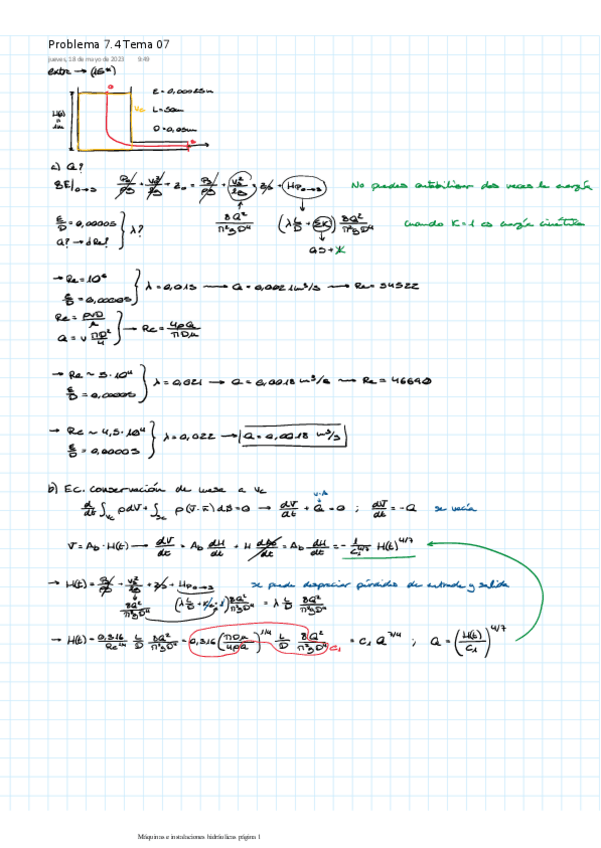 Problema 7.4 Tema 07
jueves, 18 de mayo de 2023 9:49
extra → (15^m)
ε = 0,000025m
L = 50m
D = 0,05m
H(t)
Vc
a) Q?
BE|₀→s P₀/ρg + v₀²/2g + z₀ = Ps/ρg + vs²/2g + zs + Hp₀→s No puedes contabilizar dos veces la energía
8Q²/π²gD⁴ (λ L/D + ΣK) 8Q²/π²gD⁴ cuando K=1 es energía cinética
ε/D = 0,00005
Q? → ¿Re? } λ?
→ Re = 10⁶
ε/D = 0,00005 } λ = 0,013 → Q = 0,0021m³/s → Re = 54522
Re = ρvD/μ
Q = v πD²/4 } → Re = 4ρQ/πDμ
→ Re ~ 5·10⁴
ε/D = 0,00005 } λ = 0,021 → Q = 0,0018 m³/s → Re = 46690
→ Re ~ 4,5·10⁴
ε/D = 0,00005 } λ = 0,022 → Q = 0,0018 m³/s
b) Ec. conservación de masa a Vc
d/dt ∫vc ρdV + ∫sc ρ(v̄·n̄)dS = 0 → dV/dt + Q = 0 ; dV/dt = -Q se vacía
v·A
V = A_b·H(t) → dV/dt = A_b dH/dt + H dA_b/dt = A_b dH/dt = - 1/C₁^4/7 H(t)^4/7
→ H(t) = Ps/ρg + vs²/2g + zs + Hp₀→s se puede despreciar pérdidas de entrada y salida
8Q²/π²gD⁴ 8Q²/π²gD⁴ = λ L/D 8Q²/π²gD⁴
→ H(t) = 0,316/Re^1/4 L/D 8Q²/π²gD⁴ = 0,316 (πDμ/4ρQ)^1/4 L/D 8Q²/π²gD⁴ = C₁ Q^7/4 ; Q = (H(t)/C₁)^4/7
C₁
Máquinas e instalaciones hidráulicas página 1